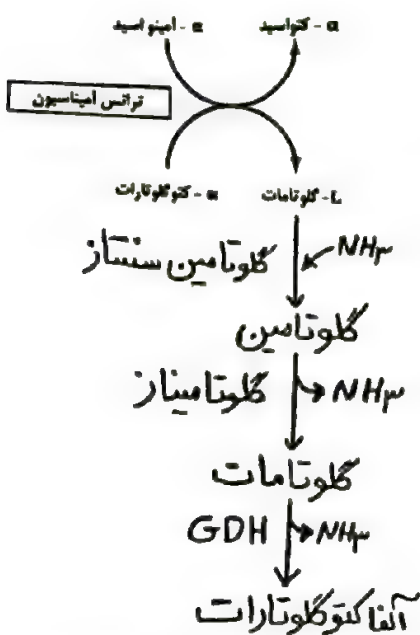 α - آمینو اسید
α - کتواسید
ترانس آمیناسیون
α - کتوگلوتارات
L - گلوتامات
گلوتامین سنتتاز
NH۳
گلوتامین
گلوتامیناز
NH۳
گلوتامات
GDH
NH۳
آلفا کتوگلوتارات